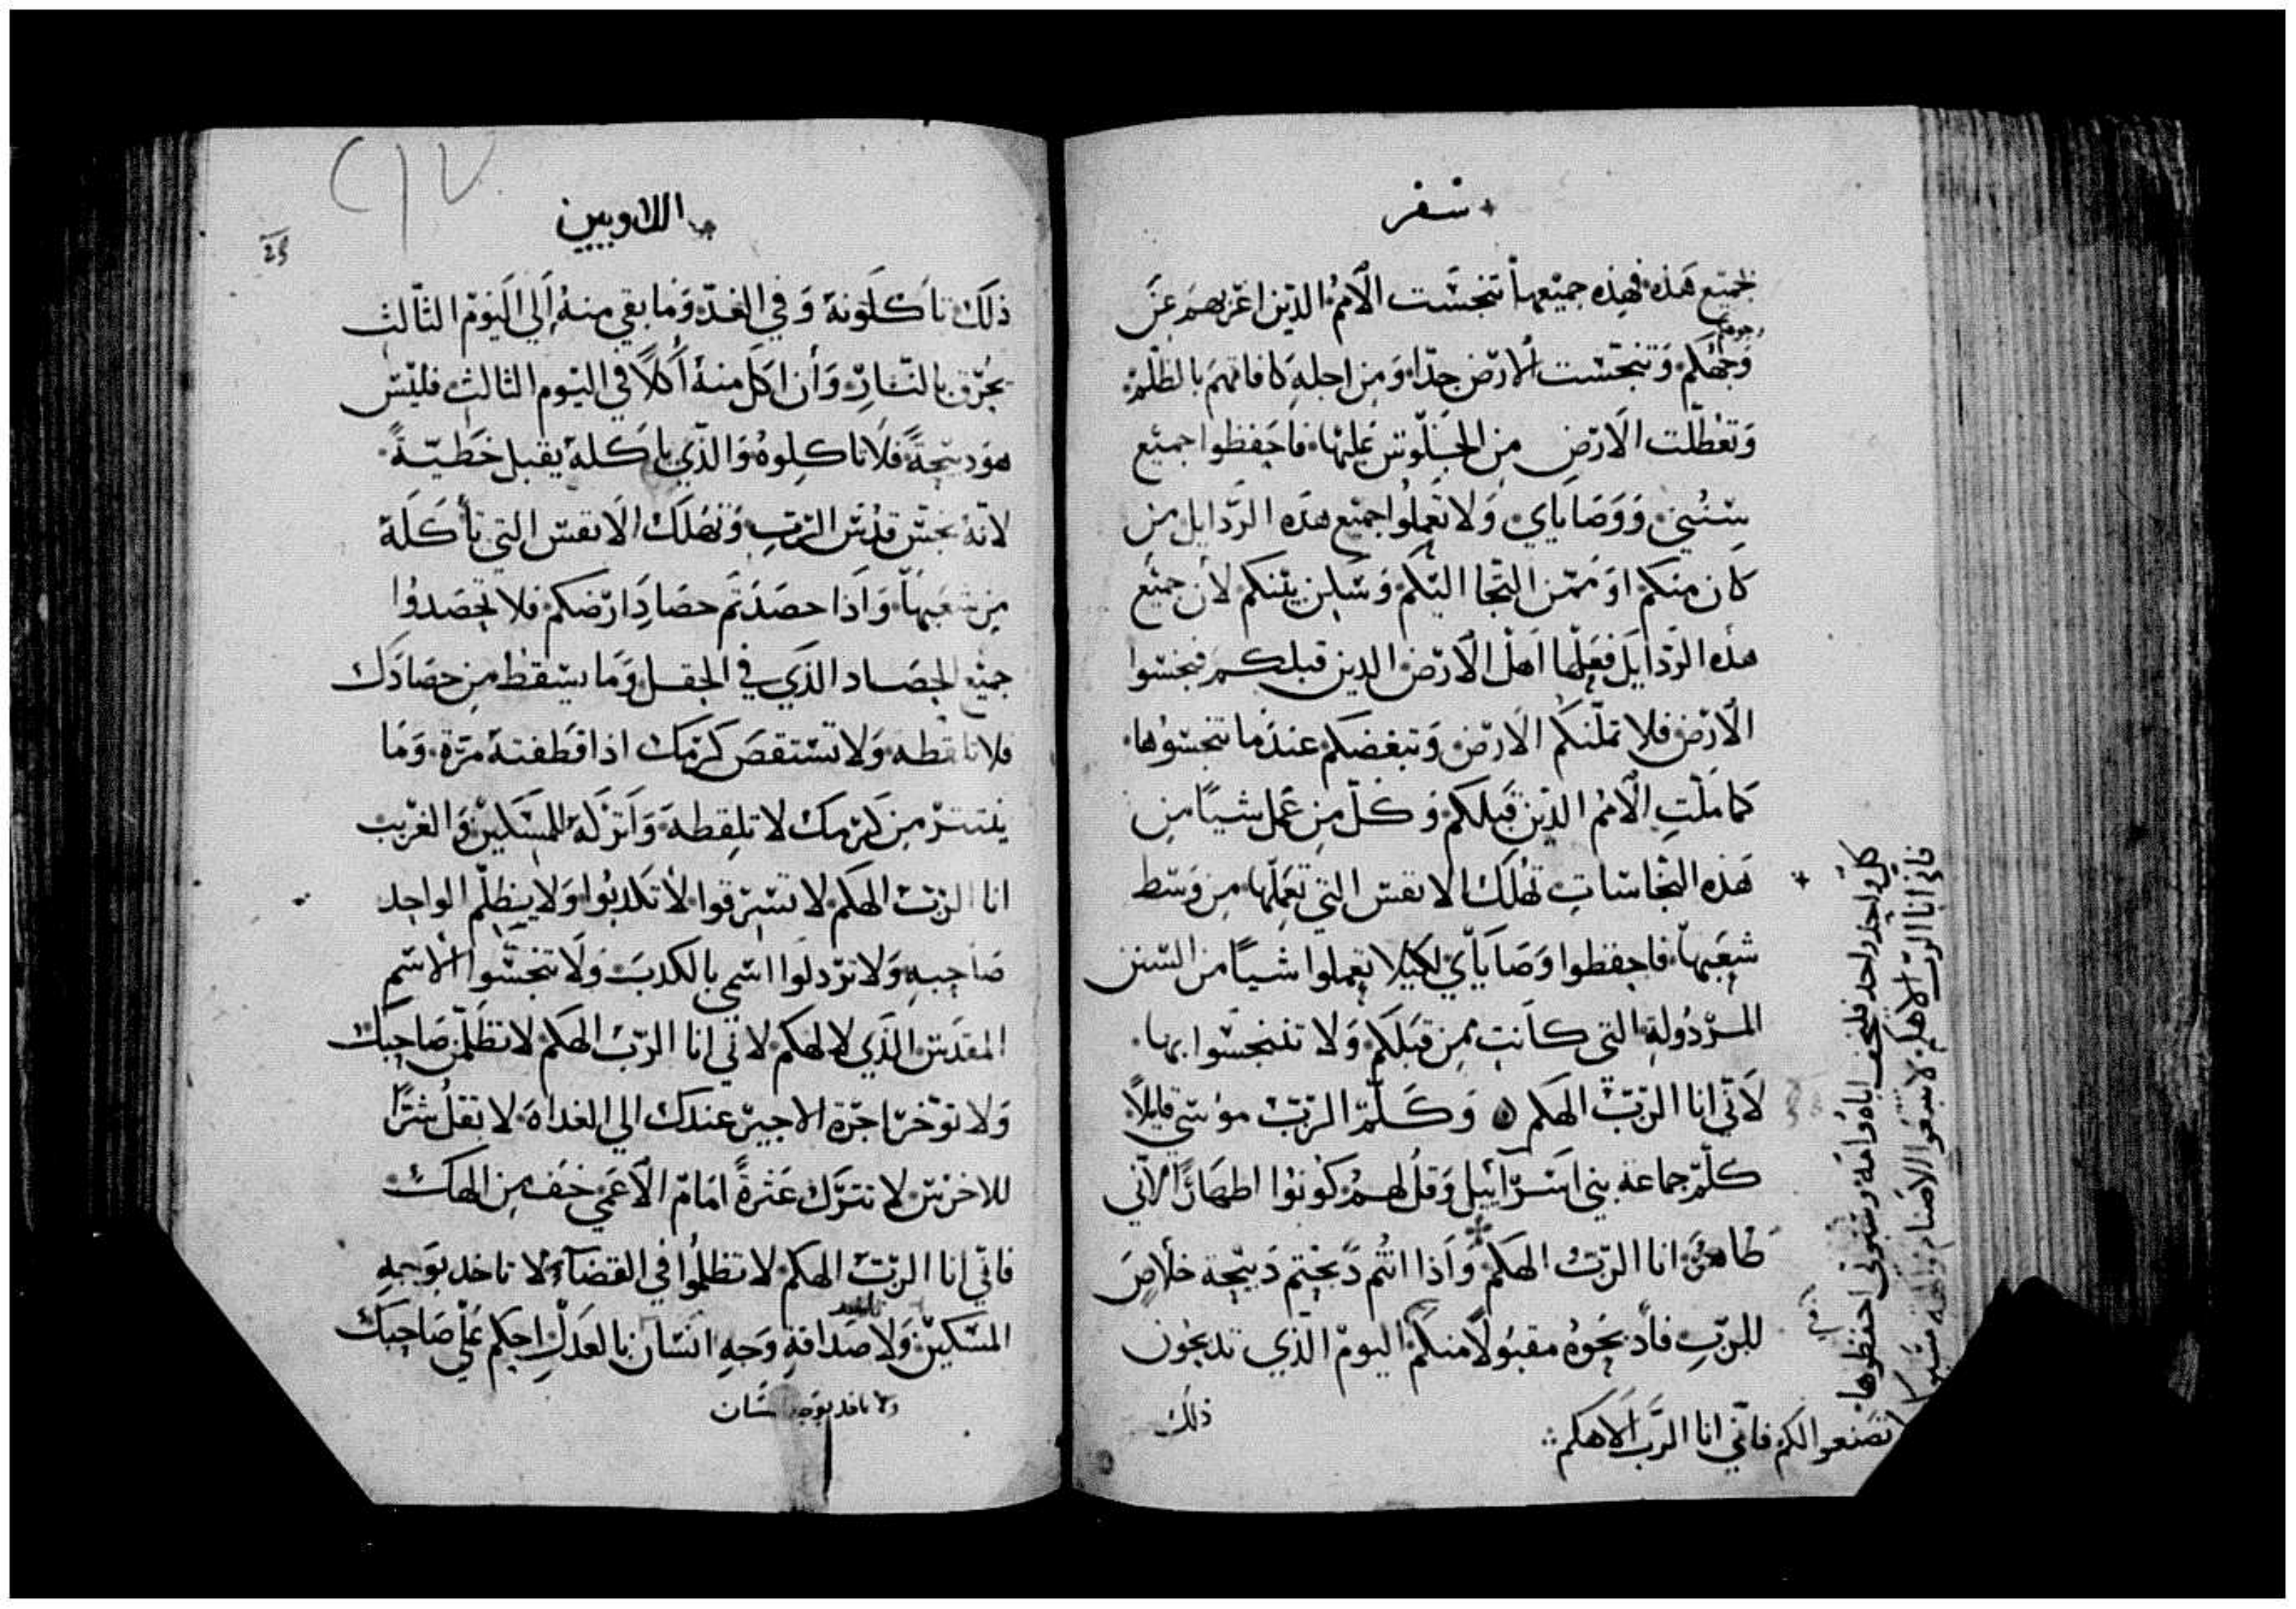 سفر
لجميع هذه فهذه جميعها تنجست الامم الذين اعزبهم عن
وجوهكم
وجهكم وتنجست الارض جدا ومن اجله كافاتهم بالظلم
وتعطلت الارض من الجلوس عليها فاحفظوا جميع
سنني ووصاياي ولا تعملوا جميع هذه الردايل من
كان منكم او ممن التجا اليكم وسكن بينكم لان جميع
هذه الردايل فعلها اهل الارض الدين قبلكم فنجسوا
الارض فلا تملنكم الارض وتبغضكم عندما تنجسوها
كما ملت الامم الذين قبلكم وكل من عمل شيا من
هذه النجاسات تهلك الانفس التي تعملها من وسط
شعبها فاحفظوا وصاياي لكيلا تعملوا شيا من السنن
المردولة التي كانت من قبلكم ولا تتنجسوا بها
لاني انا الرب الهكم وكلم الرب موسي قايلا
كلم جماعة بني اسراييل وقل لهم كونوا اطهارا لاني
طاهر انا الرب الهكم واذا انتم دبحتم دبيحة خلاص
للرب فادبحوه مقبولا منكم اليوم الذي تدبحون
ذلك
كل واحد واحد فليخف اباه وامه وسبوتي احفظوها
فاني انا الرب الاهكم لا تتبعوا الاصنام والهة مسبوكة لا
تصنعوا لكم فاني انا الرب الاهكم
اللاويين
٢١٧
ذلك تاكلونه وفي الغد وما بقي منه الي اليوم الثالث
يحرق بالنار وان اكل منه اكلا في اليوم الثالث فليس
هو دبيحة فلا تاكلوه والذي ياكله يقبل خطية
لانه نجس قدس الرب وتهلك الانفس التي تاكله
من شعبها واذا حصدتم حصاد ارضكم فلا تحصدوا
جميع الحصاد الذي في الحقل وما يسقط من حصادك
فلا تلقطه ولا تستقص كرمك اذا قطفته مرة وما
ينتتر من كرمك لا تلقطه واتركه للمسكين والغريب
انا الرب الهكم لا تسرقوا لا تكدبوا ولا يظلم الواحد
صاحبه ولا تردلوا اسمي بالكدب ولا تنجسوا الاسم
المقدس الذي لالهكم لاني انا الرب الهكم لا تظلمن صاحبك
ولا توخر اجرة الاجير عندك الي الغداه لا تقل شرا
للاخرس لا تترك عثرة امام الاعمي خف من الهك
فاني انا الرب الهكم لا تظلموا في القضاء لا تاخد بوجه
المسكين ولا صداقة وجه انسان بالعدل احكم علي صاحبك
ولا تاخد بوجه انسان